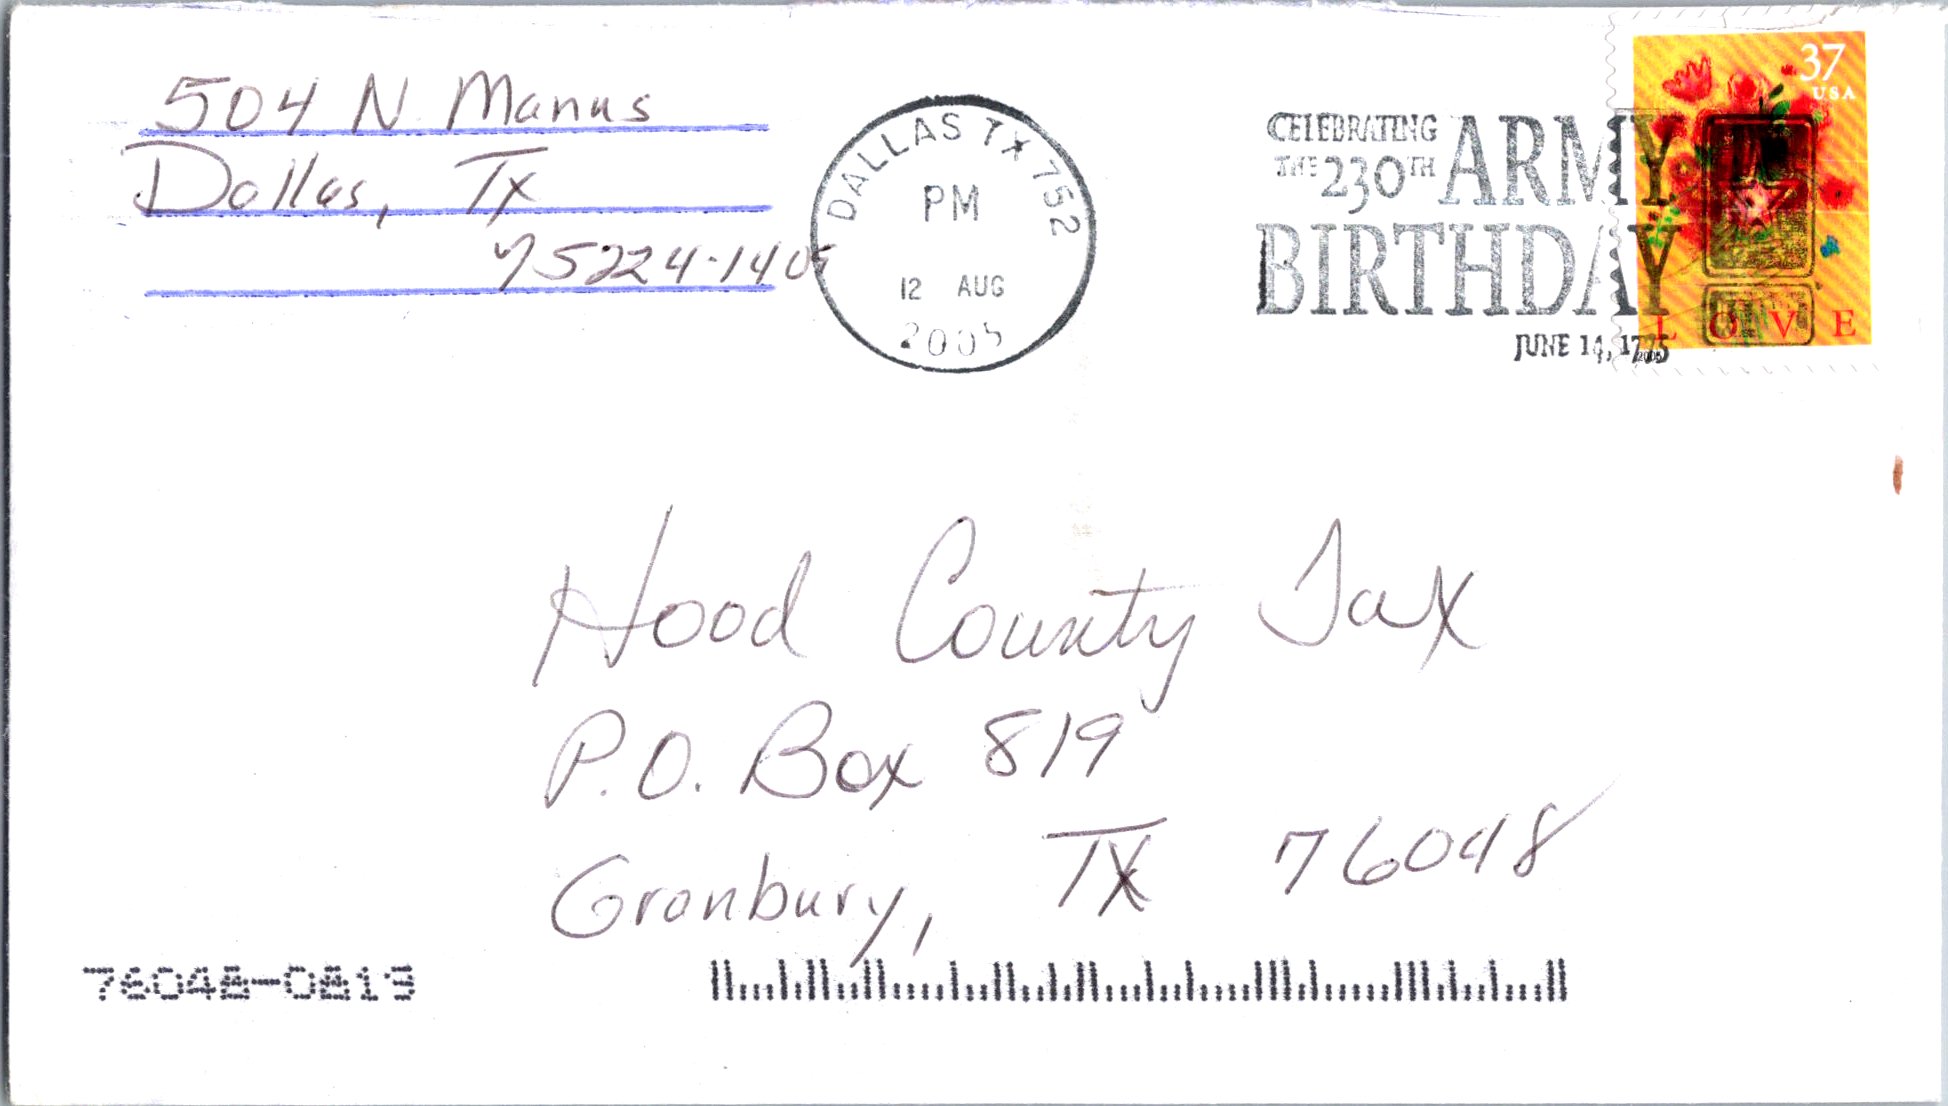 504 N. Manus
Dallas, Tx
75224-140
DALLAS TX 752
PM
12 AUG
2005
CELEBRATING
THE 230TH ARMY
BIRTHDAY
JUNE 14, 1775
37
USA
LOVE
2005
Hood County Tax
P.O. Box 819
Granbury, TX 76048
76048-0819